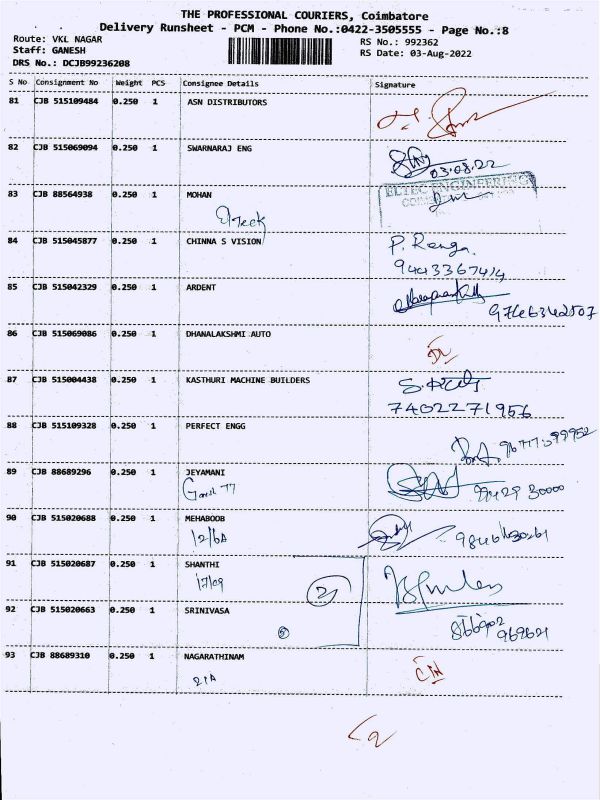 THE PROFESSIONAL COURIERS, Coimbatore
Delivery Runsheet - PCM - Phone No.:0422-3505555 - Page No.:8
Route: VKL NAGAR
RS No.: 992362
Staff: GANESH
RS Date: 03-Aug-2022
DRS No.: DCJB99236208
S No Consignment No Weight PCS Consignee Details Signature
81 CJB 515109484 0.250 1 ASN DISTRIBUTORS
82 CJB 515069094 0.250 1 SWARNARAJ ENG
03.08.22
83 CJB 88564938 0.250 1 MOHAN
ELTEC ENGINEERING
84 CJB 515045877 0.250 1 CHINNA S VISION
P. Ranga
9443367414
85 CJB 515042329 0.250 1 ARDENT
86 CJB 515069086 0.250 1 DHANALAKSHMI AUTO
DL
87 CJB 515004438 0.250 1 KASTHURI MACHINE BUILDERS
7402271956
88 CJB 515109328 0.250 1 PERFECT ENGG
89 CJB 88689296 0.250 1 JEYAMANI
90 CJB 515020688 0.250 1 MEHABOOB
12/6A
91 CJB 515020687 0.250 1 SHANTHI
17/09
92 CJB 515020663 0.250 1 SRINIVASA
866902
969621
93 CJB 88689310 0.250 1 NAGARATHINAM
21A